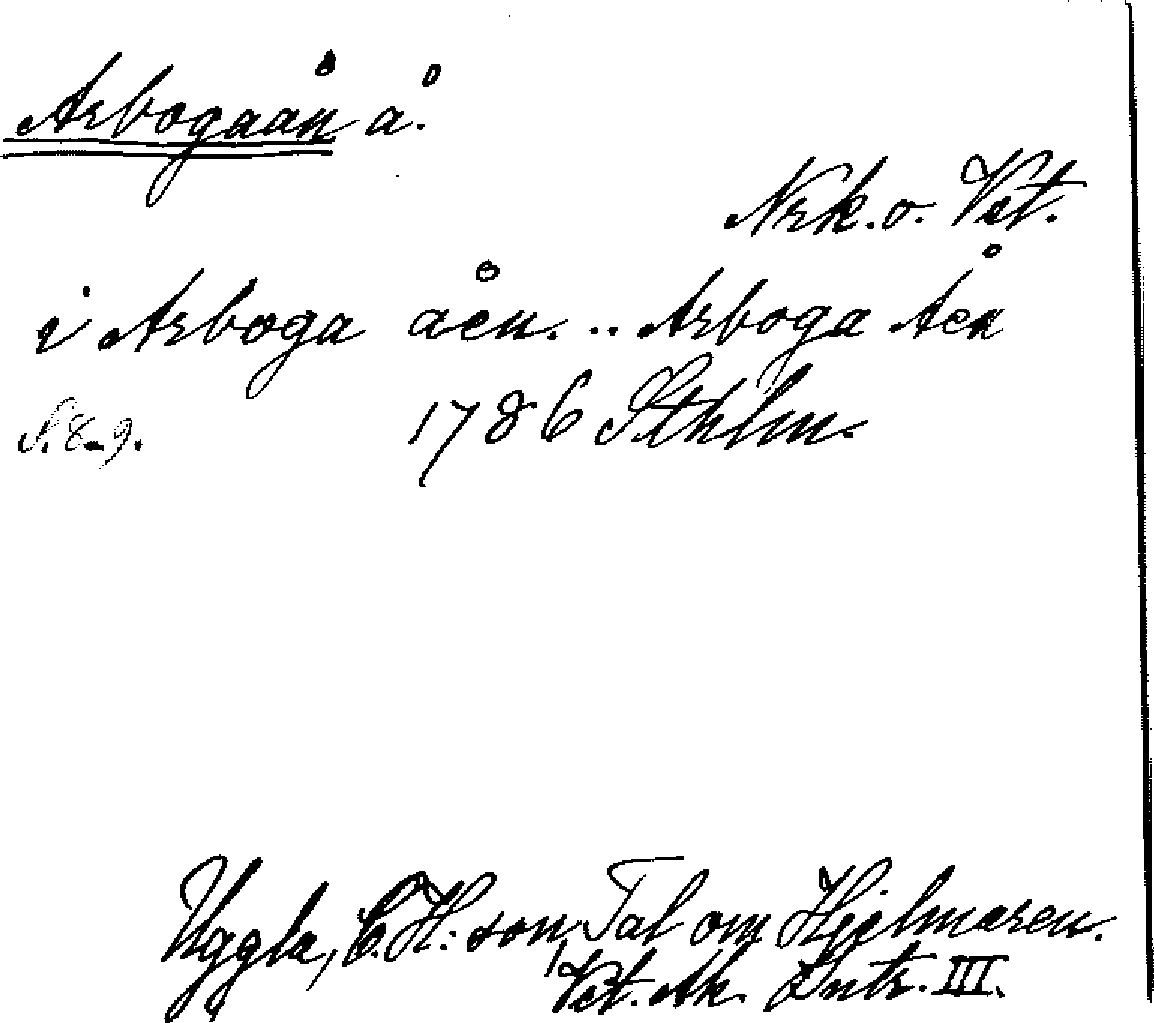 Arbogaån å.
Nrk. o. Vst.
i Arboga åen. .. Arboga Åen
S. 8-9. 1786 Sthlm.
Uggla, C. H:son, Tal om Hjelmaren.
Vet. Ak. Intr. III.